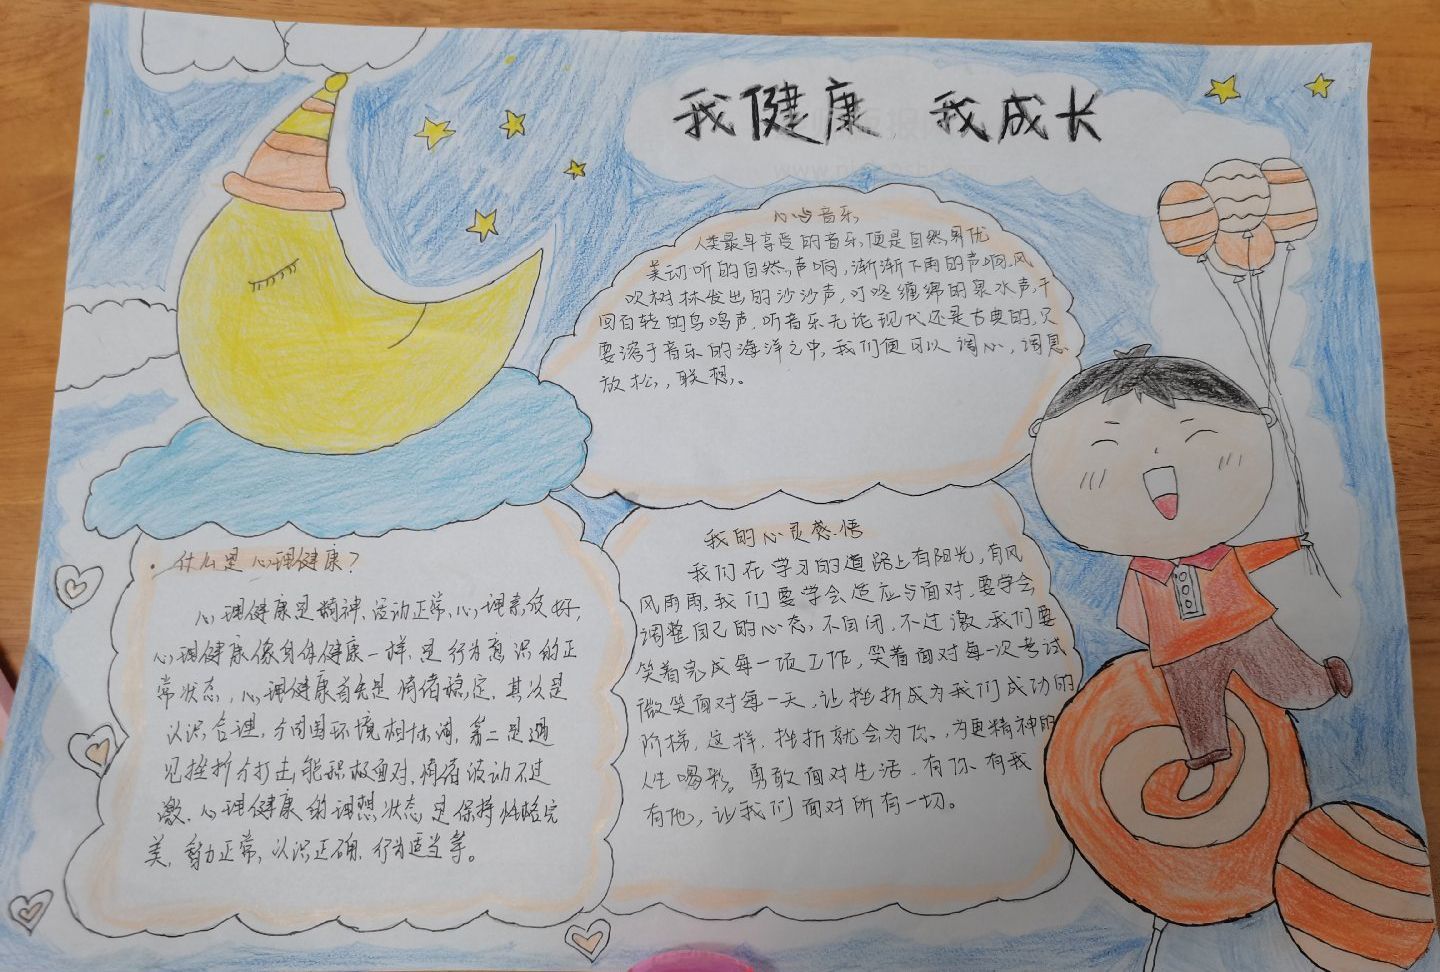 我健康 我成长
心与音乐
人类最早享受的音乐便是自然界优
美动听的自然声响,渐渐下雨的声响、风
吹树林发出的沙沙声,叮咚缠绵的泉水声,千
回百转的鸟鸣声,听音乐无论现代还是古典的,只
要溶于音乐的海洋之中,我们便可以调心,调息
放松,联想。
什么是心理健康?
心理健康是精神、活动正常、心理素质好,
心理健康像身体健康一样,是行为意识的正
常状态,心理健康首先是情绪稳定,其次是
认识合理,与周围环境相协调,第三是遇
见挫折与打击,能积极面对,情绪波动不过
激,心理健康的理想状态是保持性格完
美,智力正常,认识正确,行为适当等。
我的心灵感悟
我们在学习的道路上有阳光,有风
风雨雨,我们要学会适应与面对,要学会
调整自己的心态,不自闭,不过激,我们要
笑着完成每一项工作,笑着面对每一次考试
微笑面对每一天,让挫折成为我们成功的
阶梯,这样,挫折就会为你、为更精神的
人生喝彩。勇敢面对生活,有你有我
有他,让我们面对所有一切。